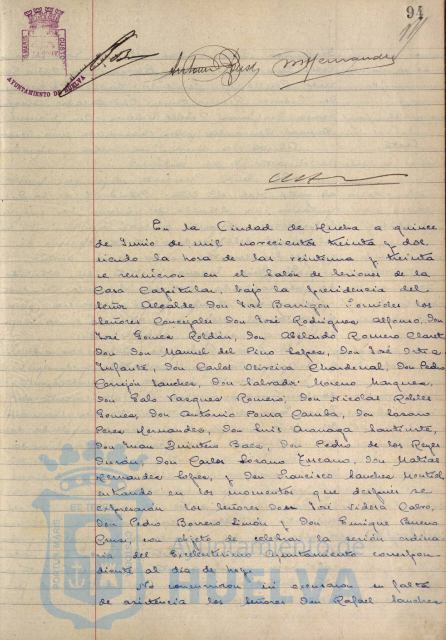 94
AYUNTAMIENTO DE HUELVA
En la Ciudad de Huelva a quince
de Junio de mil novecientos treinta y dos,
siendo la hora de las veintiuna y treinta
se reunieron en el Salón de Sesiones de la
Casa Capitular, bajo la Presidencia del
Señor Alcalde Don José Barrigón los
Señores Concejales Don José Rodríguez Alfonso, Don
José Gómez Roldán, Don Abelardo Romero Claret
Don Manuel del Pino López, Don José
Infante, Don Carlos Oliveira Chardenal, Don Pedro
Cerrejón Sánchez, Don Salvador Moreno Márquez,
Don Vázquez Romero, Don Nicolás Robles
Gómez, Don Antonio Pousa Camba, Don
Pérez Hernández, Don Luis
Don Juan Quintero Baez, Don Pedro de los Reyes
Durán, Don Carlos Lozano Don Matías
Hernández López, y Don Francisco Sánchez
entrando en los momentos que después se
expresarán los Señores Don José Calvo,
Don Pedro Borrero Limón y Don Enrique Bueno
Cruz, con objeto de celebrar la sesión ordina
ria del Excelentísimo Ayuntamiento correspon
diente al día de hoy.
No concurrieron ni excusaron su falta
de asistencia los Señores Don Rafael Sánchez
Ayuntamiento de
HUELVA